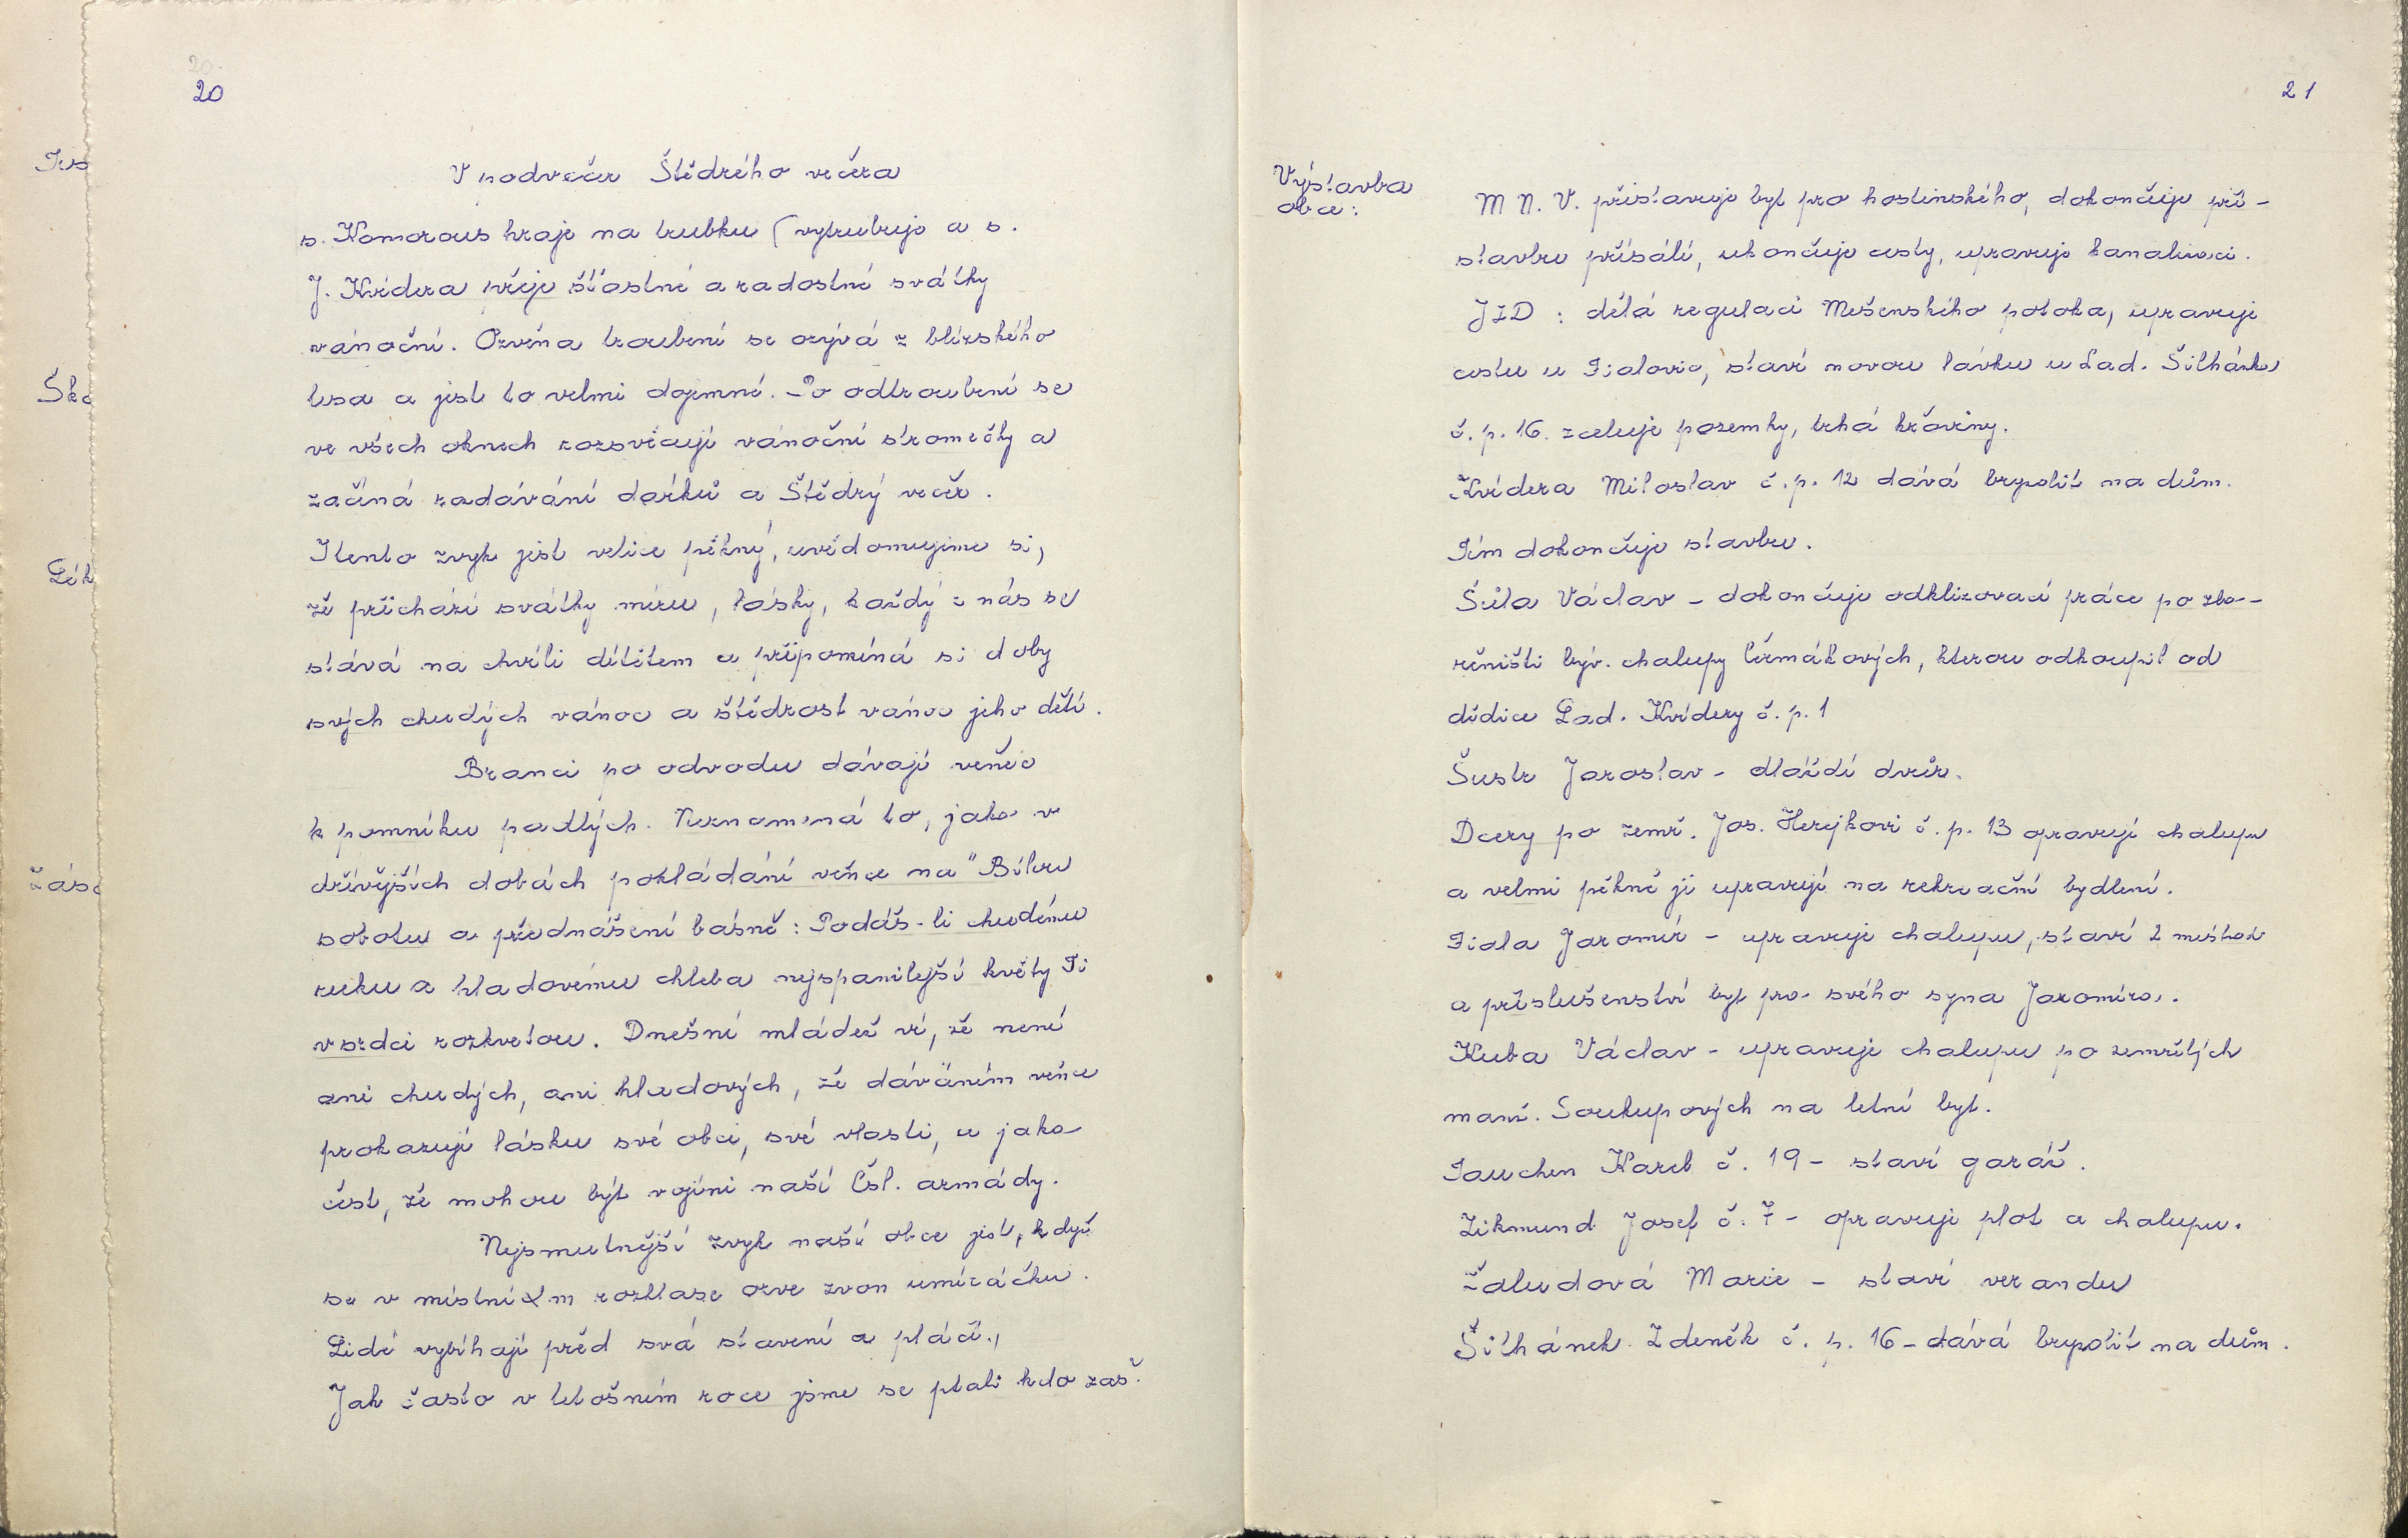 20
20
Šk
Lék
V podvečer Štědrého večera
s. Komorous hraje na trubku (vytrubuje a s.
J. Kvídera přeje šťastné a radostné svátky
vánoční. Ozvěna troubení se ozývá z blízského
lesa a jest to velmi dojemné. Po odtroubení se
ve všech oknech rozsvěcují vánoční stromečky a
začíná rozdávání dárků a Štědrý večer.
I tento zvyk jest velice pěkný, uvědomujeme si,
že přichází svátky míru, lásky, každý z nás se
stává na chvíli dítětem a připomíná si doby
svých chudých vánoc a štědrost vánoc jeho dětí.
Branci po odvodu dávají věnec
k pomníku padlých. Neznamená to, jako v
dřívějších dobách pokládání věnce na "Bílou
sobotu a přednášení básně: Podáš-li chudému
ruku a hladovému chleba nejspanilejší květy Ti
v srdci rozkvetou. Dnešní mládež ví, že není
ani chudých, ani hladových, že dáváním věnce
prokazují lásku své obci, své vlasti, a jako
čest, že mohou být vojíni naší Čsl. armády.
Nejsmutnější zvyk naší obce jest, když
se v místním rozhlase ozve zvon umíráčku.
Lidé vybíhají před svá stavení a pláčí.,
Jak často v letošním roce jsme se ptali kdo zas?
21
Výstavba
obce:
M N. V. přistavuje byt pro hostinského, dokončuje při-
stavbu přísálí, ukončuje cesty, upravuje kanalizaci.
JZD: dělá regulaci Mešenského potoka, upravuje
cestu u Fialovic, staví novou lávku u Lad. Šilhánka
č. p. 16. zceluje pozemky, trhá křoviny.
Kvídera Miloslav č. p. 12 dává bryzolit na dům.
Tím dokončuje stavbu.
Šůla Václav - dokončuje odklizovací práce po zbo-
řeništi býv. chalupy Čermákových, kterou odkoupil od
dědice Lad. Kvídery č. p. 1
Šustr Jaroslav - dláždí dvůr.
Dcery po zemř. Jos. Herejkovi č. p. 13 opravují chalupu
a velmi pěkně ji upravují na rekreační bydlení.
Fiala Jaromír - upravuje chalupu, staví 2 místnosti
a příslušenství byt pro svého syna Jaromíra.
Kuba Václav - upravuje chalupu po zemřelých
manž. Soukupových na letní byt.
Tauchen Karel č. 19 - staví garáž.
Zikmund Josef č. 7 - opravuje plot a chalupu.
Žaludová Marie - staví verandu
Šilhánek Zdeněk č. p. 16 - dává bryzolit na dům.